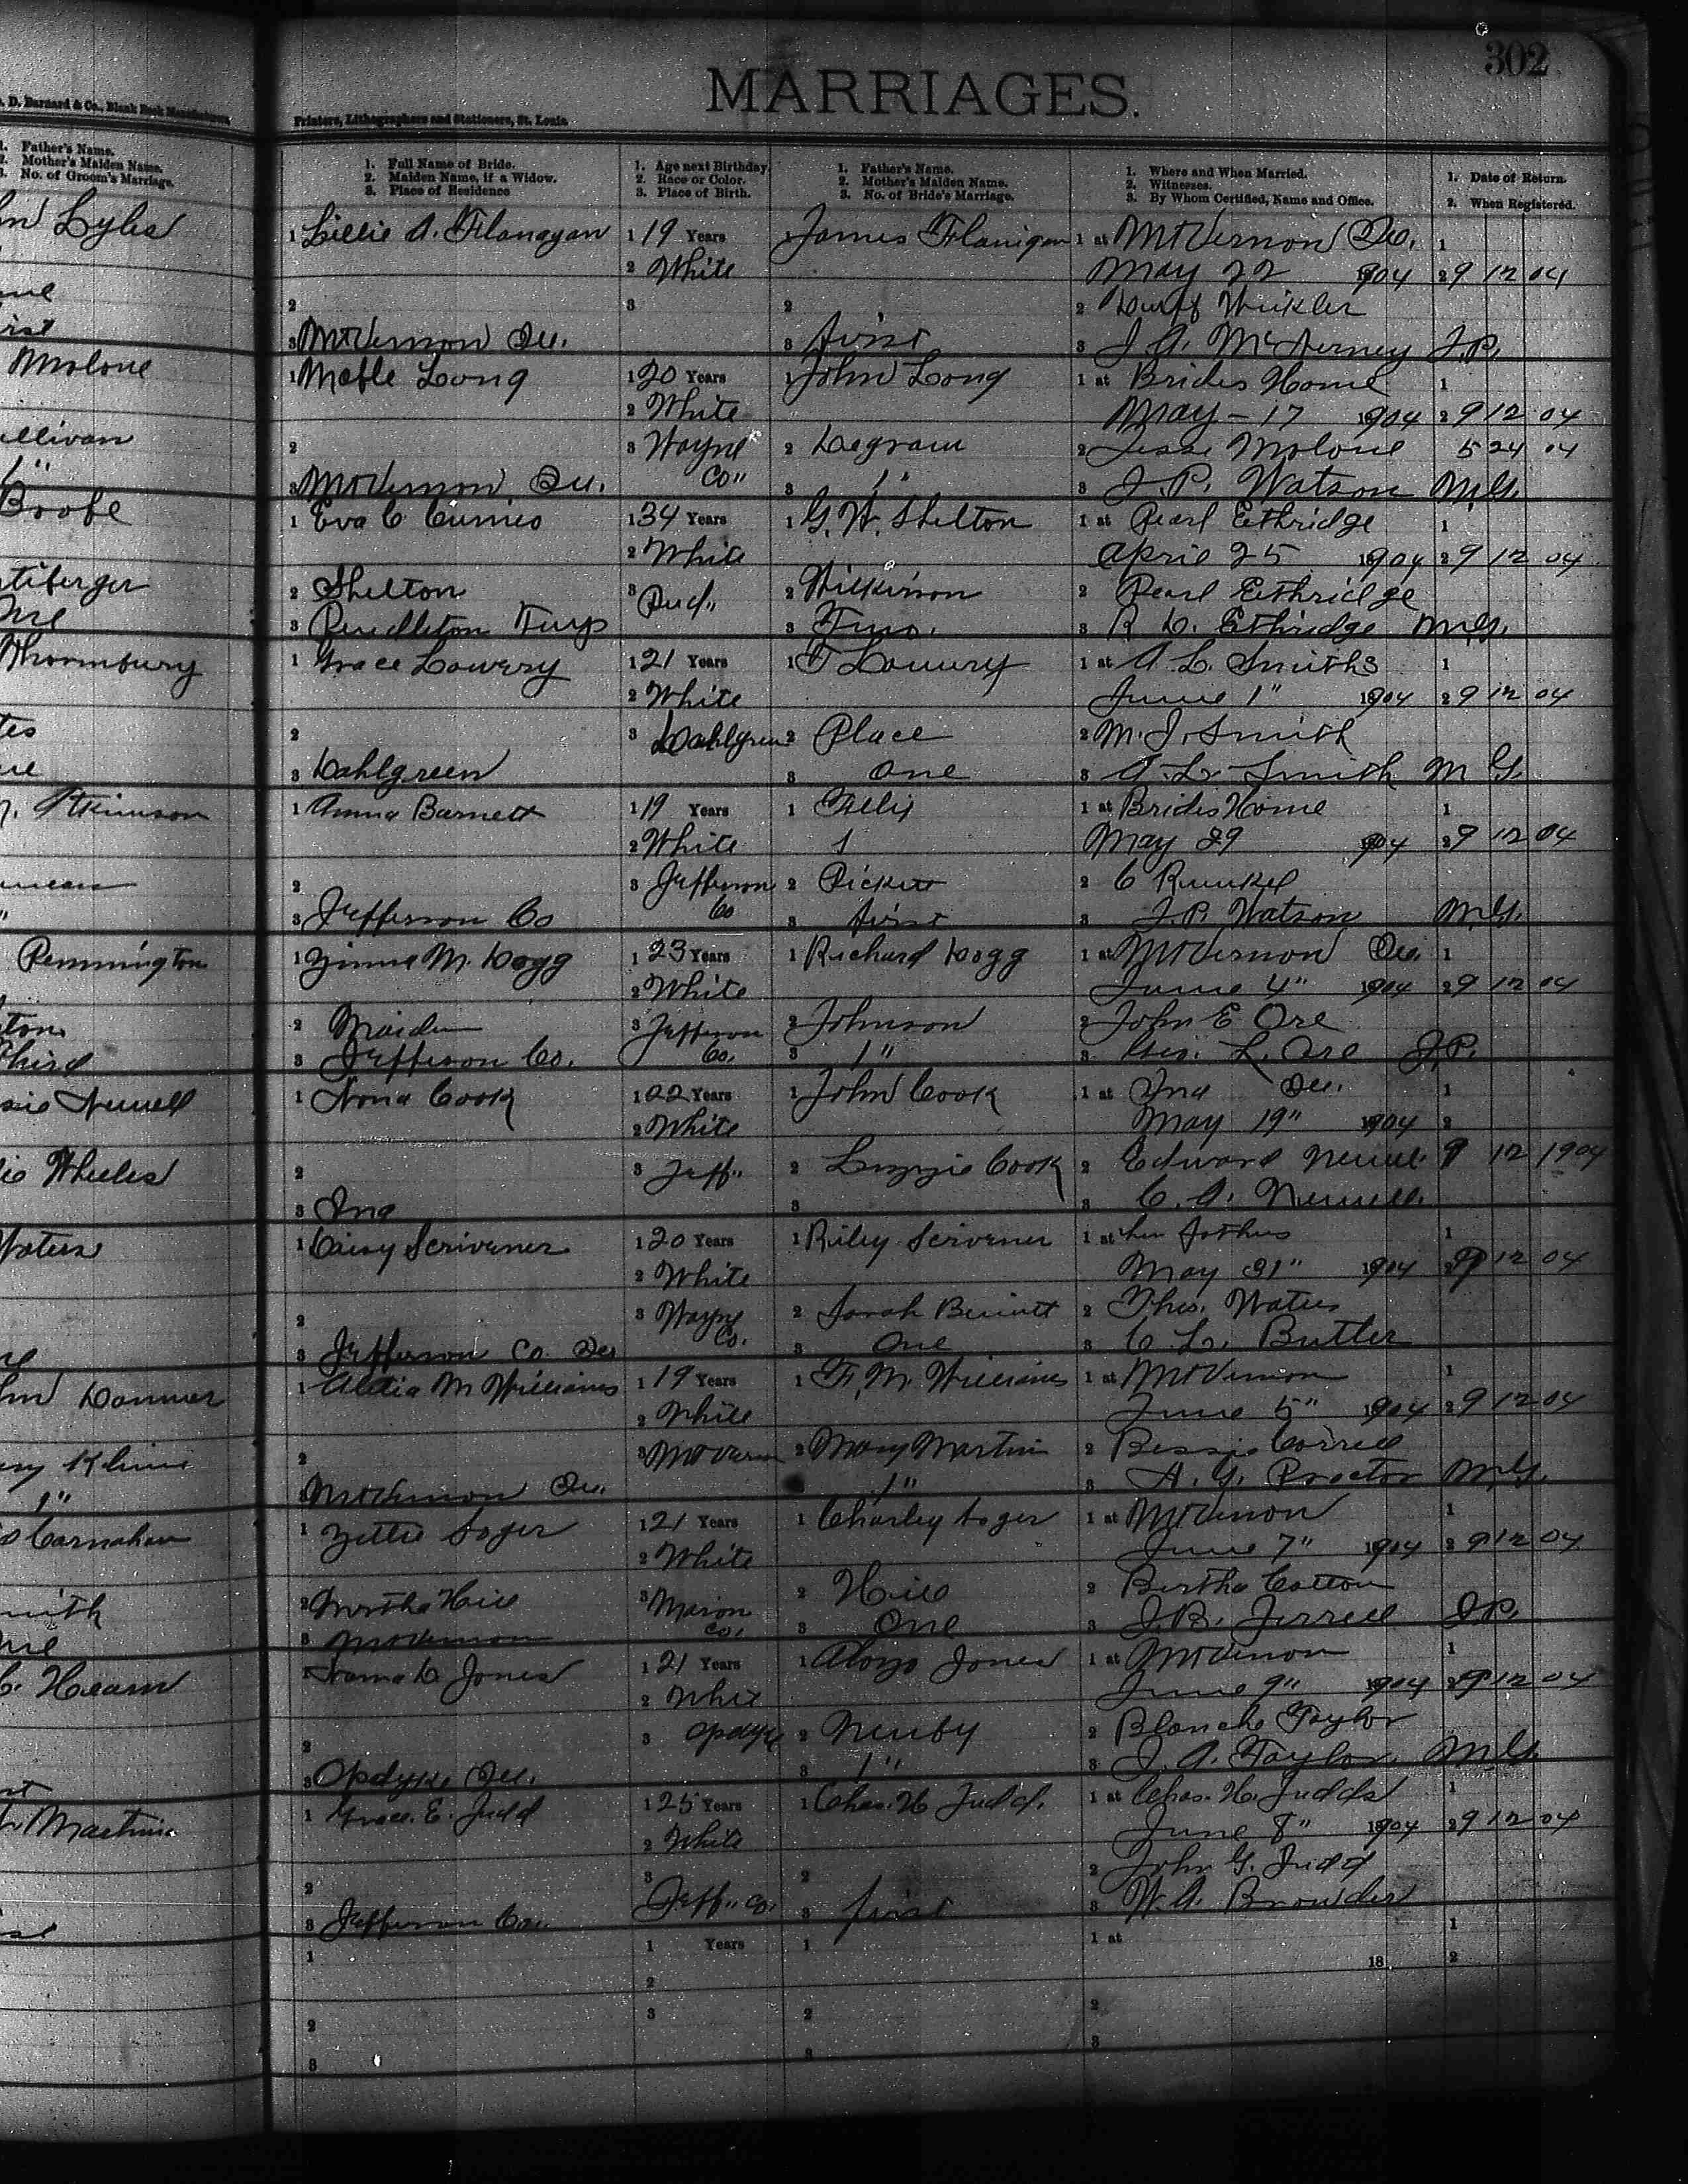 302
MARRIAGES.
D. Barnard & Co., Blank Book Manufacturers,
Printers, Lithographers and Stationers, St. Louis
1. Father's Name.
2. Mother's Maiden Name.
3. No. of Groom's Marriage.
1. Full Name of Bride.
2. Maiden Name, if a Widow.
3. Place of Residence
1. Age next Birthday.
2. Race or Color.
3. Place of Birth.
1. Father's Name.
2. Mother's Maiden Name.
3. No. of Bride's Marriage.
1. Where and When Married.
2. Witnesses.
3. By Whom Certified, Name and Office.
1. Date of Return.
2. When Registered.
Lyles
1 Lillie A. Flanagan 1 19 Years 1 James Flanigan 1 at Mt Vernon Ill. 1
2 White May 22 1904 2 9 12 04
2 3 2 2 Winkler
3 Mt Vernon Ill. 3 first 3 J. A. McAerney J.P.
Malone
1 Mable Long 1 20 Years 1 John Long 1 at Brides Home 1
2 White May - 17 1904 2 9 12 04
2 3 Wayne 2 2 Jesse Malone 5 24 04
3 Mt Vernon Ill. Co" 3 1" 3 J. P. Watson M.G.
1 Eva C 1 34 Years 1 G. W. Shelton 1 at Pearl Eethridge 1
2 White April 25 1904 2 9 12 04
2 Shelton 3 Ind" 2 Wilkinson 2 Pearl Eethridge
3 Pendleton Twp 3 Two. 3 R. D. Ethridge M.G.
Thornsbury
1 Grace Lowery 1 21 Years 1 Lowery 1 at A. L. Smiths 1
2 White June 1" 1904 2 9 12 04
2 3 Dahlgren 2 Place 2 M. J. Smith
3 Dahlgreen 3 One 3 A. L. Smith M G.
Atkinson
1 Anna Barnett 1 19 Years 1 1 at Brides Home 1
2 White May 29 1904 2 9 12 04
2 3 Jefferson 2 Pickett 2 C Runkel
3 Jefferson Co Co 3 first 3 J. P. Watson M.G.
Pennington
1 M. Hogg 1 23 Years 1 Richard Hogg 1 at Mt Vernon Ill. 1
2 White June 4" 1904 2 9 12 04
2 Maiden 3 Jefferson 2 Johnson 2 John E Ore
3 Jefferson Co. Co. 3 1" 3 Geo. L. Ore J.P.
Newell
1 Nona Cook 1 22 Years 1 John Cook 1 at Ina Ill. 1
2 White May 19" 1904 2
Wheeles
2 3 Jeff" 2 Lizzie Cook 2 Edward Newell 9 12 1904
3 Ina 3 3 C. A. Newell
Waters
1 Daisy Scrivener 1 20 Years 1 Riley Scrivener 1 at her fathers 1
2 White May 31" 1904 2 9 12 04
2 3 Wayne 2 Sarah Bennett 2 Thos. Waters
3 Jefferson Co. Ill Co. 3 One 3 C. L. Butler
1 M Williams 1 19 Years 1 F. M. Williams 1 at Mt Vernon 1
2 White June 5" 1904 2 9 12 04
2 3 Mt Vernon 2 Mary Martin 2 Bessie Correll
Mt Vernon Ill. 1" 3 A. G. Proctor M.G.
1"
Carnahan
1 1 21 Years 1 Charley 1 at Mt Vernon 1
2 White June 7" 1904 2 9 12 04
2 Hill 3 Marion 2 Hill 2 Bertha Cotton
3 Mt Vernon Co. 3 One 3 J. B. Jerrell J.P.
Hearn
1 Jones 1 21 Years 1 Alonzo Jones 1 at Mt Vernon 1
2 White June 9" 1904 2 9 12 04
2 3 Opdyke 2 Newby 2 Blanche Taylor
3 Opdyke Ill. 3 1" 3 J. A. Taylor M.G.
Martin
1 Grace. E. Judd 1 25 Years 1 Chas. H Judd. 1 at Chas. H. Judds 1
2 White June 8" 1904 2 9 12 04
2 3 2 2 John G. Judd
3 Jefferson Co. Jeff" Co. 3 first 3 W. A. Browder
1 1 Years 1 1 at 1
2 18 2
2 3 2 2
3 3 3